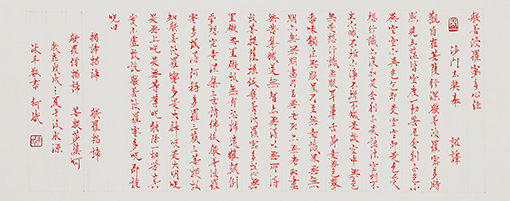 般若波羅蜜多心經
沙門玄奘奉 詔譯
觀自在菩薩行深般若波羅蜜多時
照見五蘊皆空度一切苦厄舍利子色不
異空空不異色色即是空空即是色受
想行識亦復如是舍利子是諸法空相不
生不滅不垢不淨不增不減是故空中無色
無受想行識無眼耳鼻舌身意無色聲
香味觸法無眼界乃至無意識界無無
明亦無無明盡乃至無老死亦無老死盡
無苦集滅道無智亦無得以無所得
故菩提薩埵依般若波羅蜜多故心無
罣礙無罣礙故無有恐怖遠離顛倒
夢想究竟涅槃三世諸佛依般若波羅
蜜多故得阿耨多羅三藐三菩提故
知般若波羅蜜多是大神咒是大明咒
是無上咒是無等等咒能除一切苦真
實不虛故說般若波羅蜜多咒即說
咒曰
揭諦揭諦 般羅揭諦
般羅僧揭諦 菩提莎婆訶
歲在戊戌之夏
沐手敬書